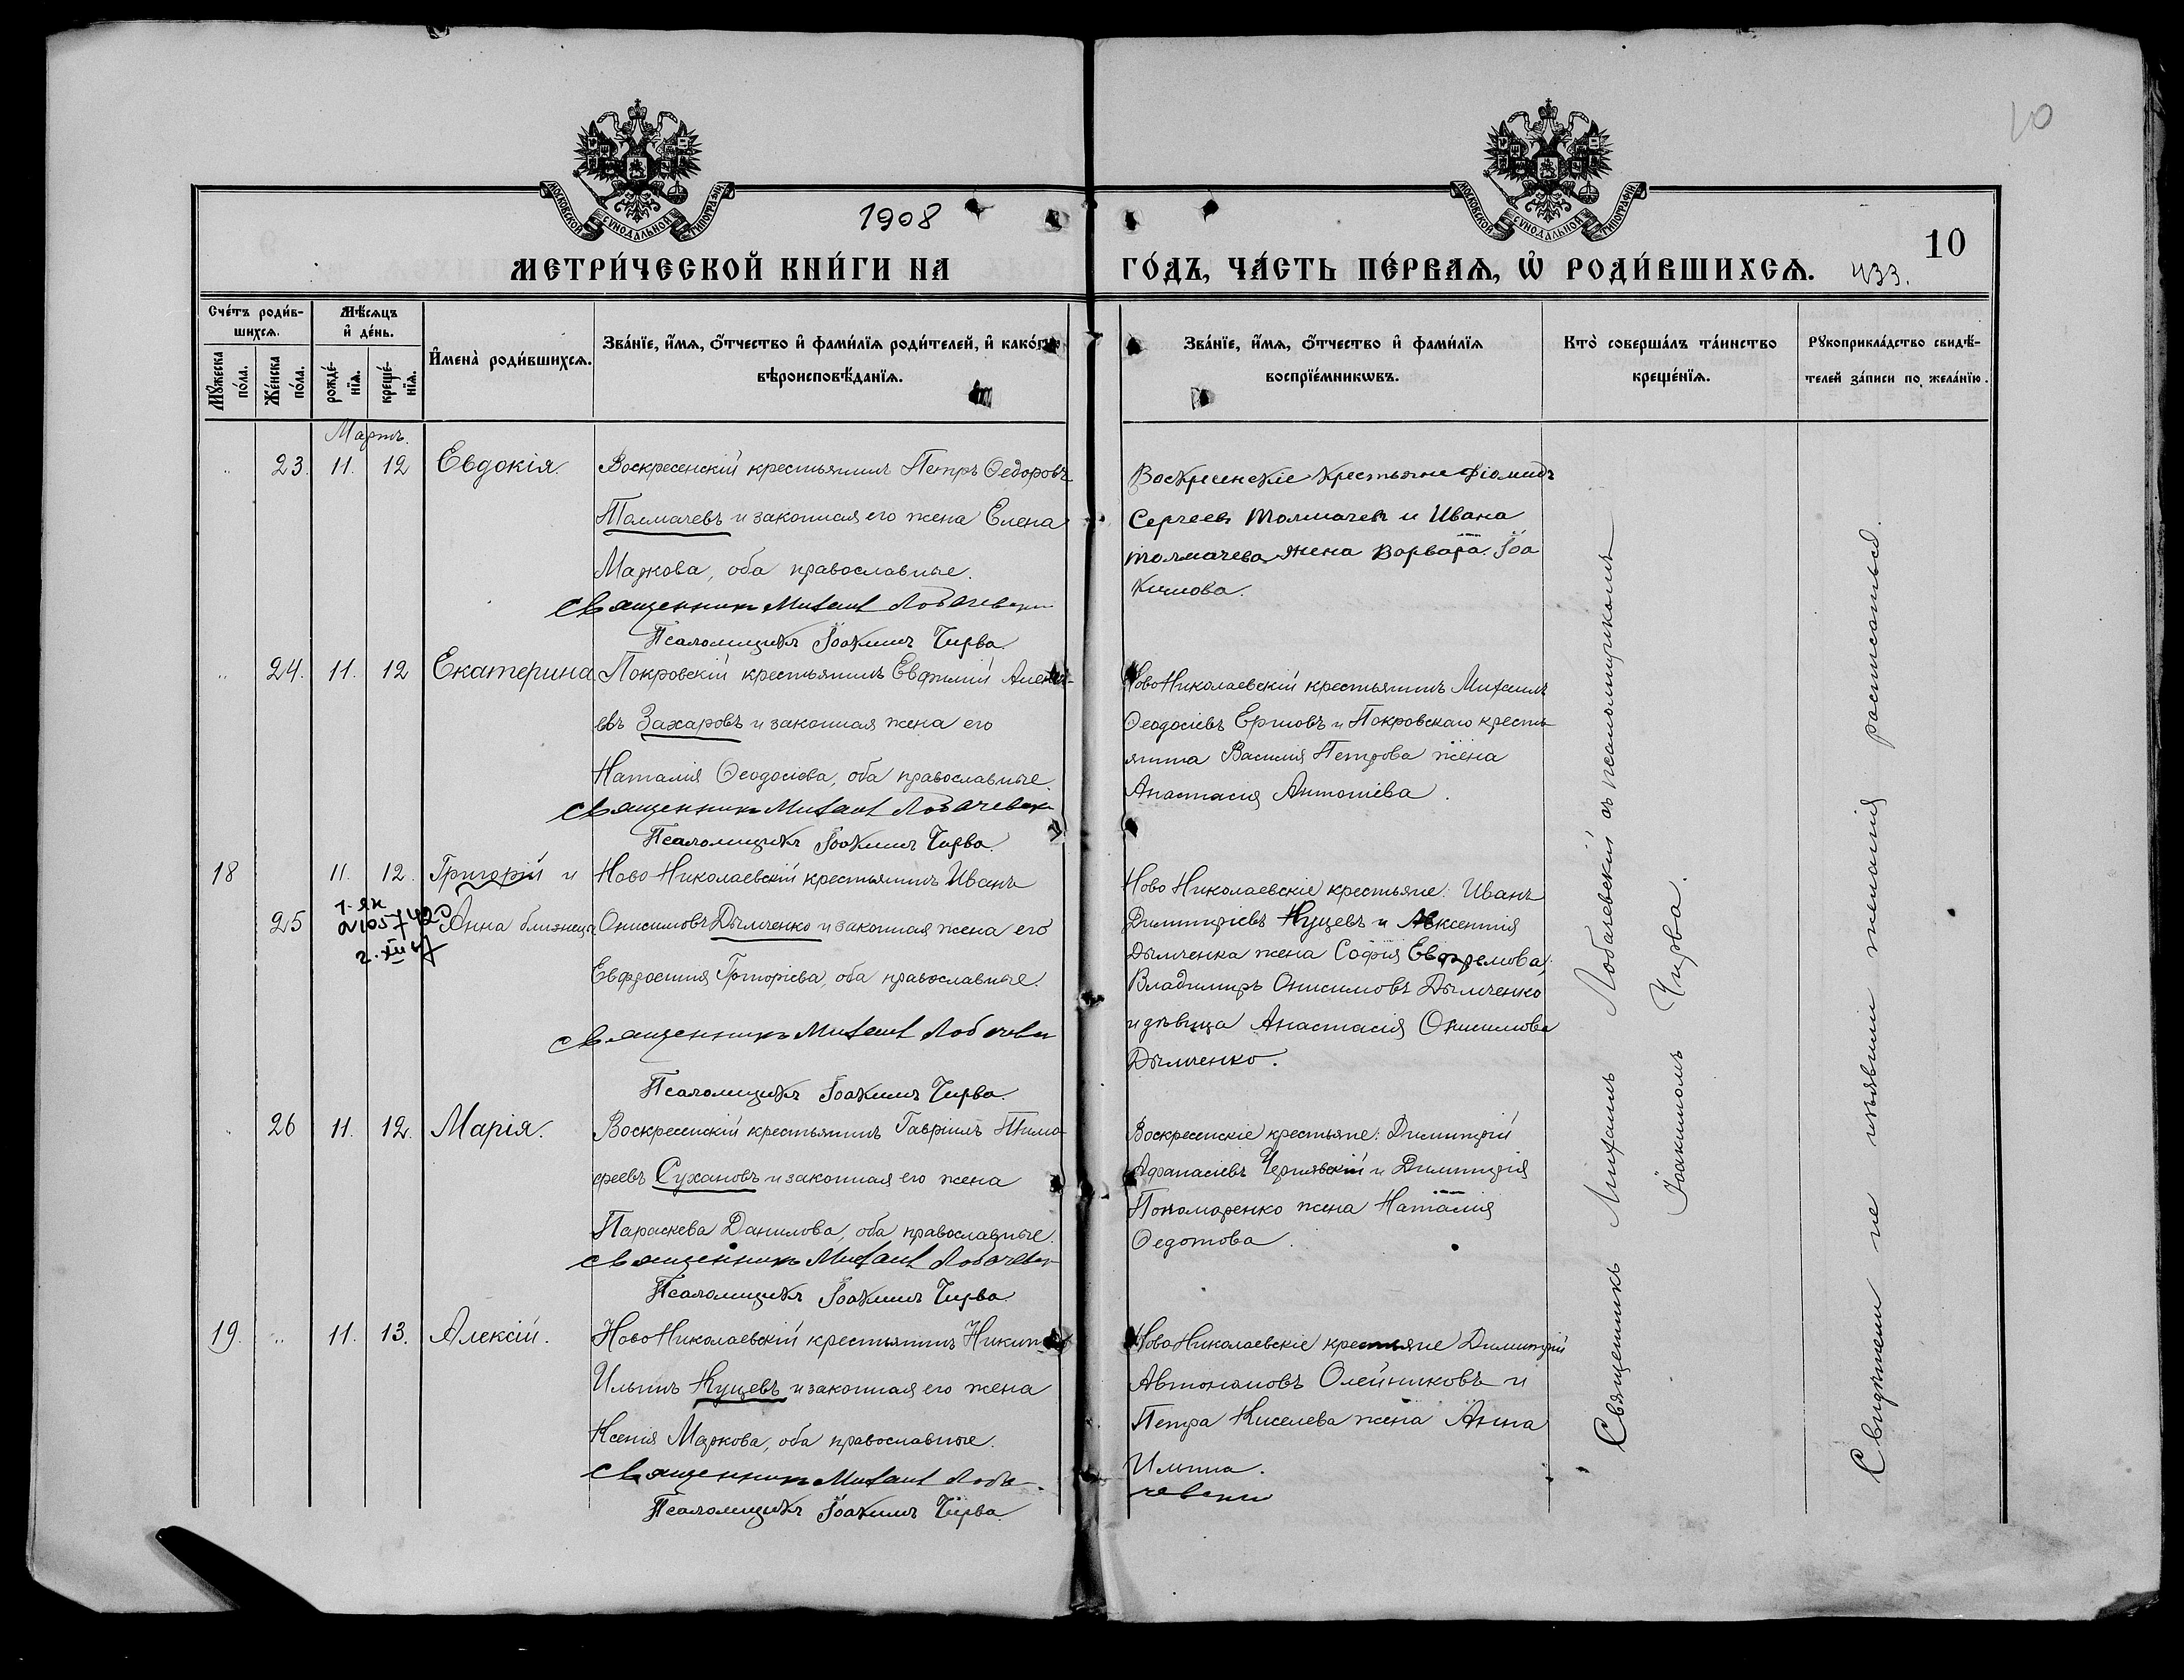 10
МОСКОВСКОЙ СѴНОДАЛЬНОЙ ТИПОГРАФІИ
МОСКОВСКОЙ СѴНОДАЛЬНОЙ ТИПОГРАФІИ
1908
10
МЕТРИ́ЧЕСКОЙ КНИ́ГИ НА
ГО́ДЪ, ЧА́СТЬ ПЕ́РВАѦ, Ѡ҆ РОДИ́ВШИХСѦ.
433.
Сче́тъ роди́в-
шихсѧ.
Мѣ́сѧцъ
и҆ де́нь.
Мꙋ́жеска
по́ла.
Же́нска
по́ла.
рожде́-
нїѧ.
креще́-
нїѧ.
И҆мена̀ роди́вшихсѧ.
Зва́нїе, и҆́мѧ, ѻ҆́тчество и҆ фами́лїѧ роди́телей, и҆ како́гѡ
вѣроисповѣ́данїѧ.
Зва́нїе, и҆́мѧ, ѻ҆́тчество и҆ фами́лїѧ
воспрїе́мникѡвъ.
Кто̀ соверша́лъ та́инство
креще́нїѧ.
Рꙋкоприкла́дство свидѣ́-
телей за́писи по жела́нїю.
Мартъ.
23. 11. 12 Евдокія. Воскресенскій крестьянинъ Петръ Ѳедоровъ
Толмачевъ и законная его жена Елена
Маркова, оба православные.
Священникъ Михаил Лобачевски
Псаломщикъ Іоакимъ Чирва.
Воскресенскіе крестьяне Діомидъ
Сергеевъ Толмачевъ и Ивана
Толмачева жена Варвара Іоа
кимова.
24. 11. 12 Екатерина Покровскій крестьянинъ Евфимій Алексѣ-
евъ Захаровъ и законная жена его
Наталія Ѳеодосіева, оба православные.
Священникъ Михаил Лобачевск
Псаломщикъ Іоакимъ Чирва.
НовоНиколаевскій крестьянинъ Михаилъ
Ѳеодосіевъ Ершовъ и Покровскаго кресть
янина Василія Петрова жена
Анастасія Антоніева.
18 11. 12. Григорій и Ново Николаевскій крестьянинъ Иванъ
25 Анна близнеца Онисимовъ Дымченко и законная жена его
Евфросинія Григоріева, оба православные.
Священникъ Михаил Лобачевск
Псаломщикъ Іоакимъ Чирва.
Ново Николаевскіе крестьяне: Иванъ
Димитріевъ Куцевъ и Авксентія
Дымченка жена Софія Евфремова;
Владимиръ Онисимовъ Дымченко
и дѣвица Анастасія Онисимова
Дымченко.
26 11. 12. Марія. Воскресенскій крестьянинъ Гавріилъ Тимо-
феевъ Сухановъ и законная его жена
Параскева Данилова, оба православные.
Священникъ Михаил Лобачевск
Псаломщикъ Іоакимъ Чирва
Воскресенскіе крестьяне: Димитрій
Афанасіевъ Чернявскій и Димитрія
Пономаренко жена Наталія
Ѳедотова.
19. 11. 13. Алексій. НовоНиколаевскій крестьянинъ Никита
Ильинъ Куцевъ и законная его жена
Ксенія Маркова, оба православные.
Священникъ Михаил Лоба-
Псаломщикъ Іоакимъ Чирва.
НовоНиколаевскіе крестьяне Димитрій
Автономовъ Олейниковъ и
Петра Киселева жена Анна
Ильина.
чевски
Священникъ Михаилъ Лобачевскій съ псаломщикомъ
Іоакимомъ Чирва.
Свидѣтели не изъявили желанія расписаться.